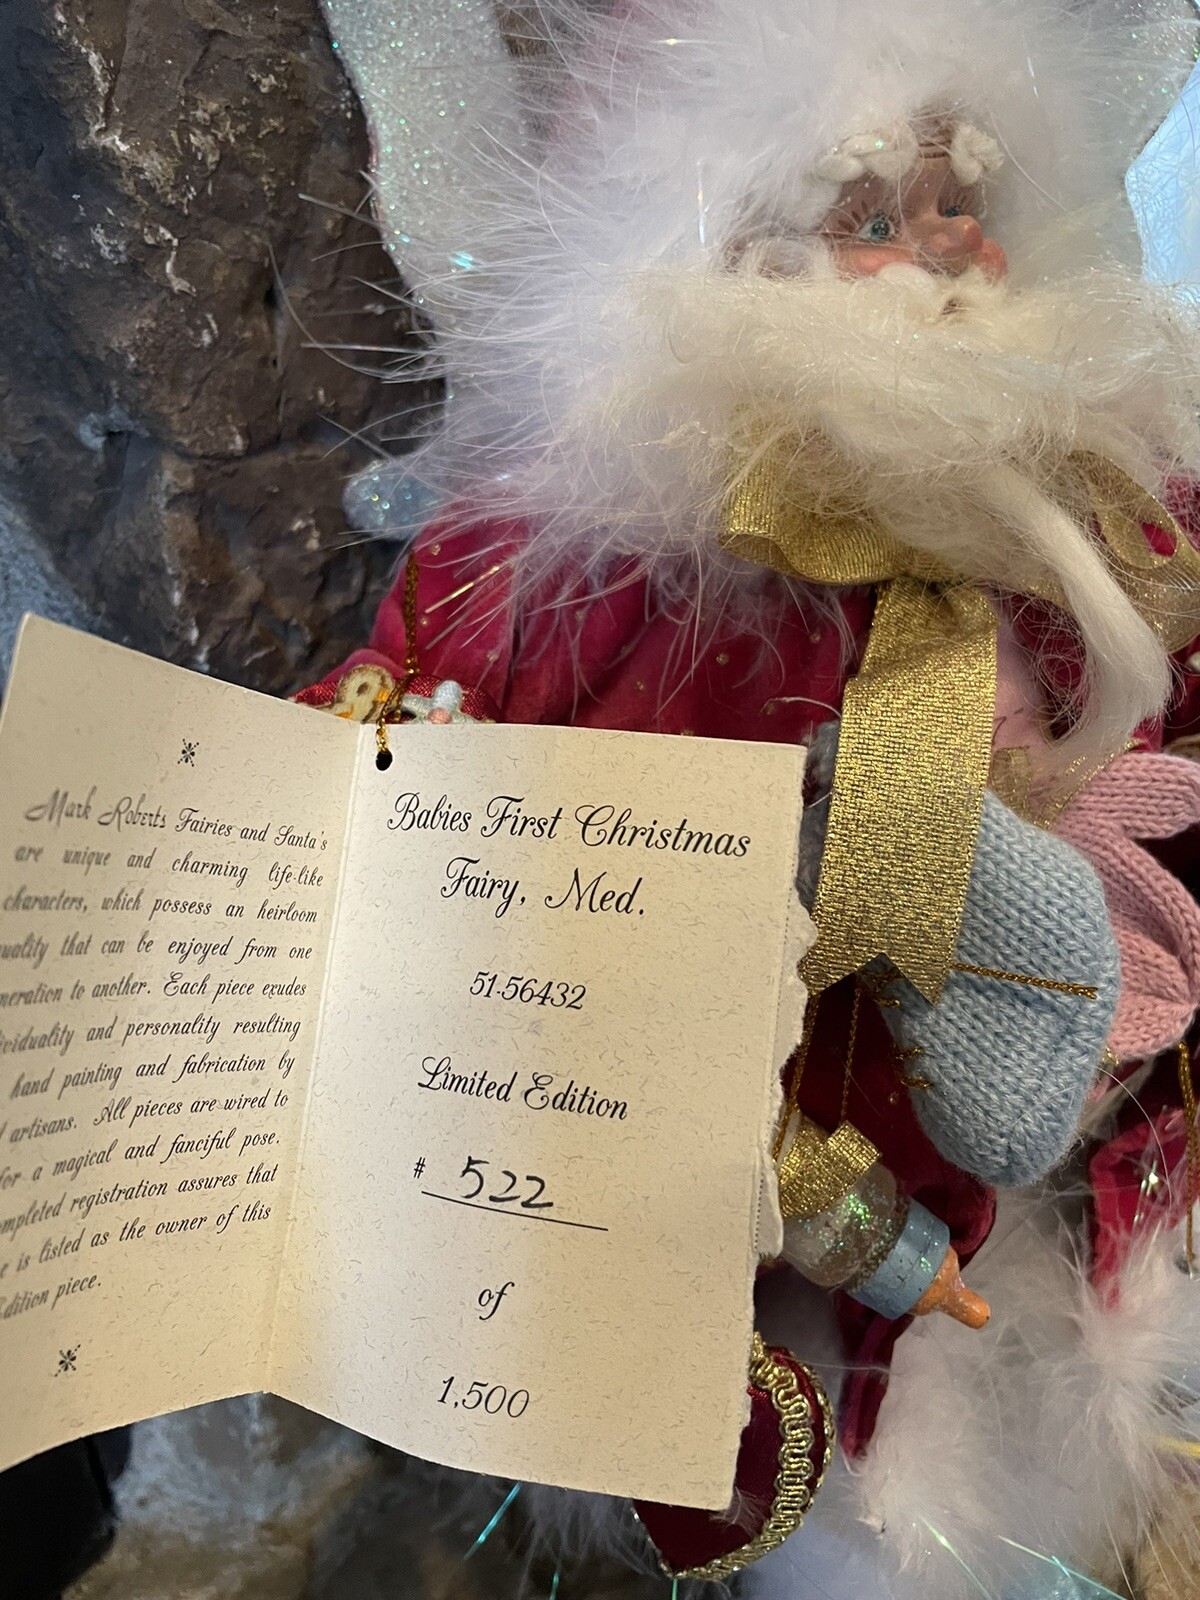 Mark Roberts Fairies and Santa's
are unique and charming life-like
characters, which possess an heirloom
quality that can be enjoyed from one
to another. Each piece exudes
and personality resulting
hand painting and fabrication by
artisans. All pieces are wired to
for a magical and fanciful pose.
registration assures that
is listed as the owner of this
piece.
Babies First Christmas
Fairy, Med.
51-56432
Limited Edition
# 522
of
1,500